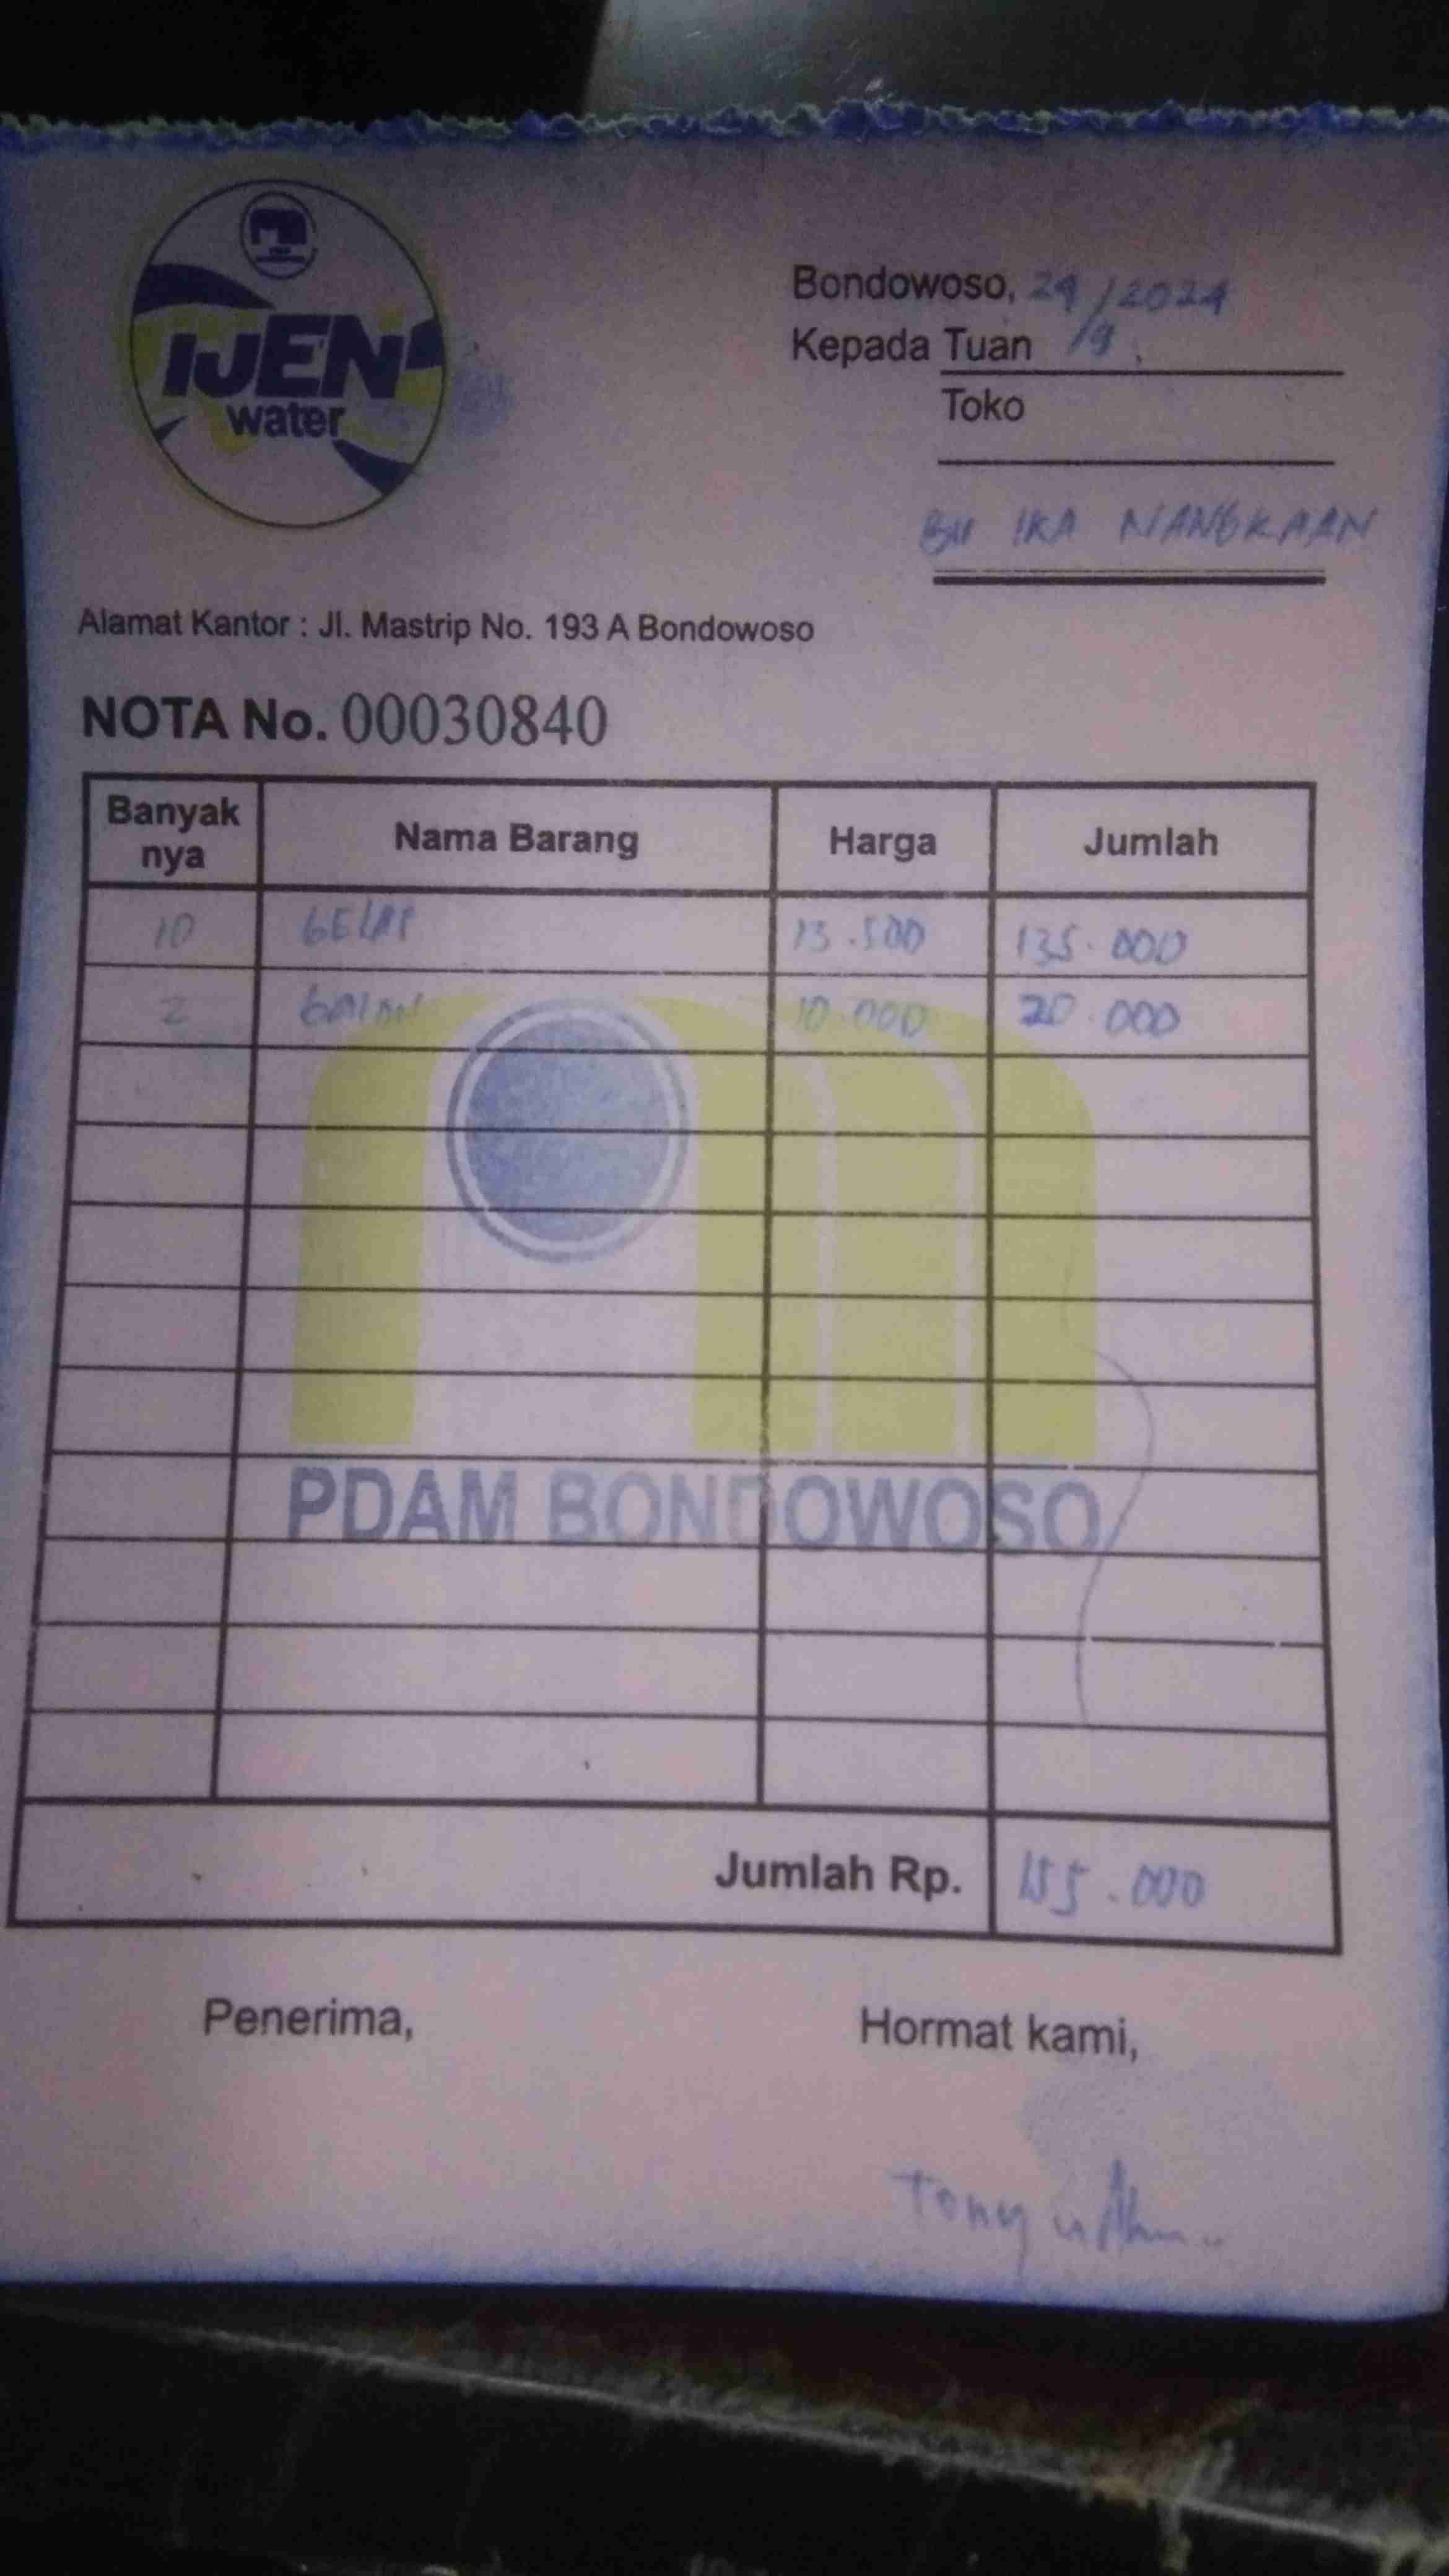 IJEN
water
Bondowoso, 24/9/2024
Kepada Tuan
Toko
BU IKA NANGKAAN
Alamat Kantor : Jl. Mastrip No. 193 A Bondowoso
NOTA No. 00030840
Banyak nya Nama Barang Harga Jumlah
10 GELAS 13.500 135.000
2 GALON 10.000 20.000
PDAM BONDOWOSO
Jumlah Rp. 155.000
Penerima, Hormat kami,
Tony